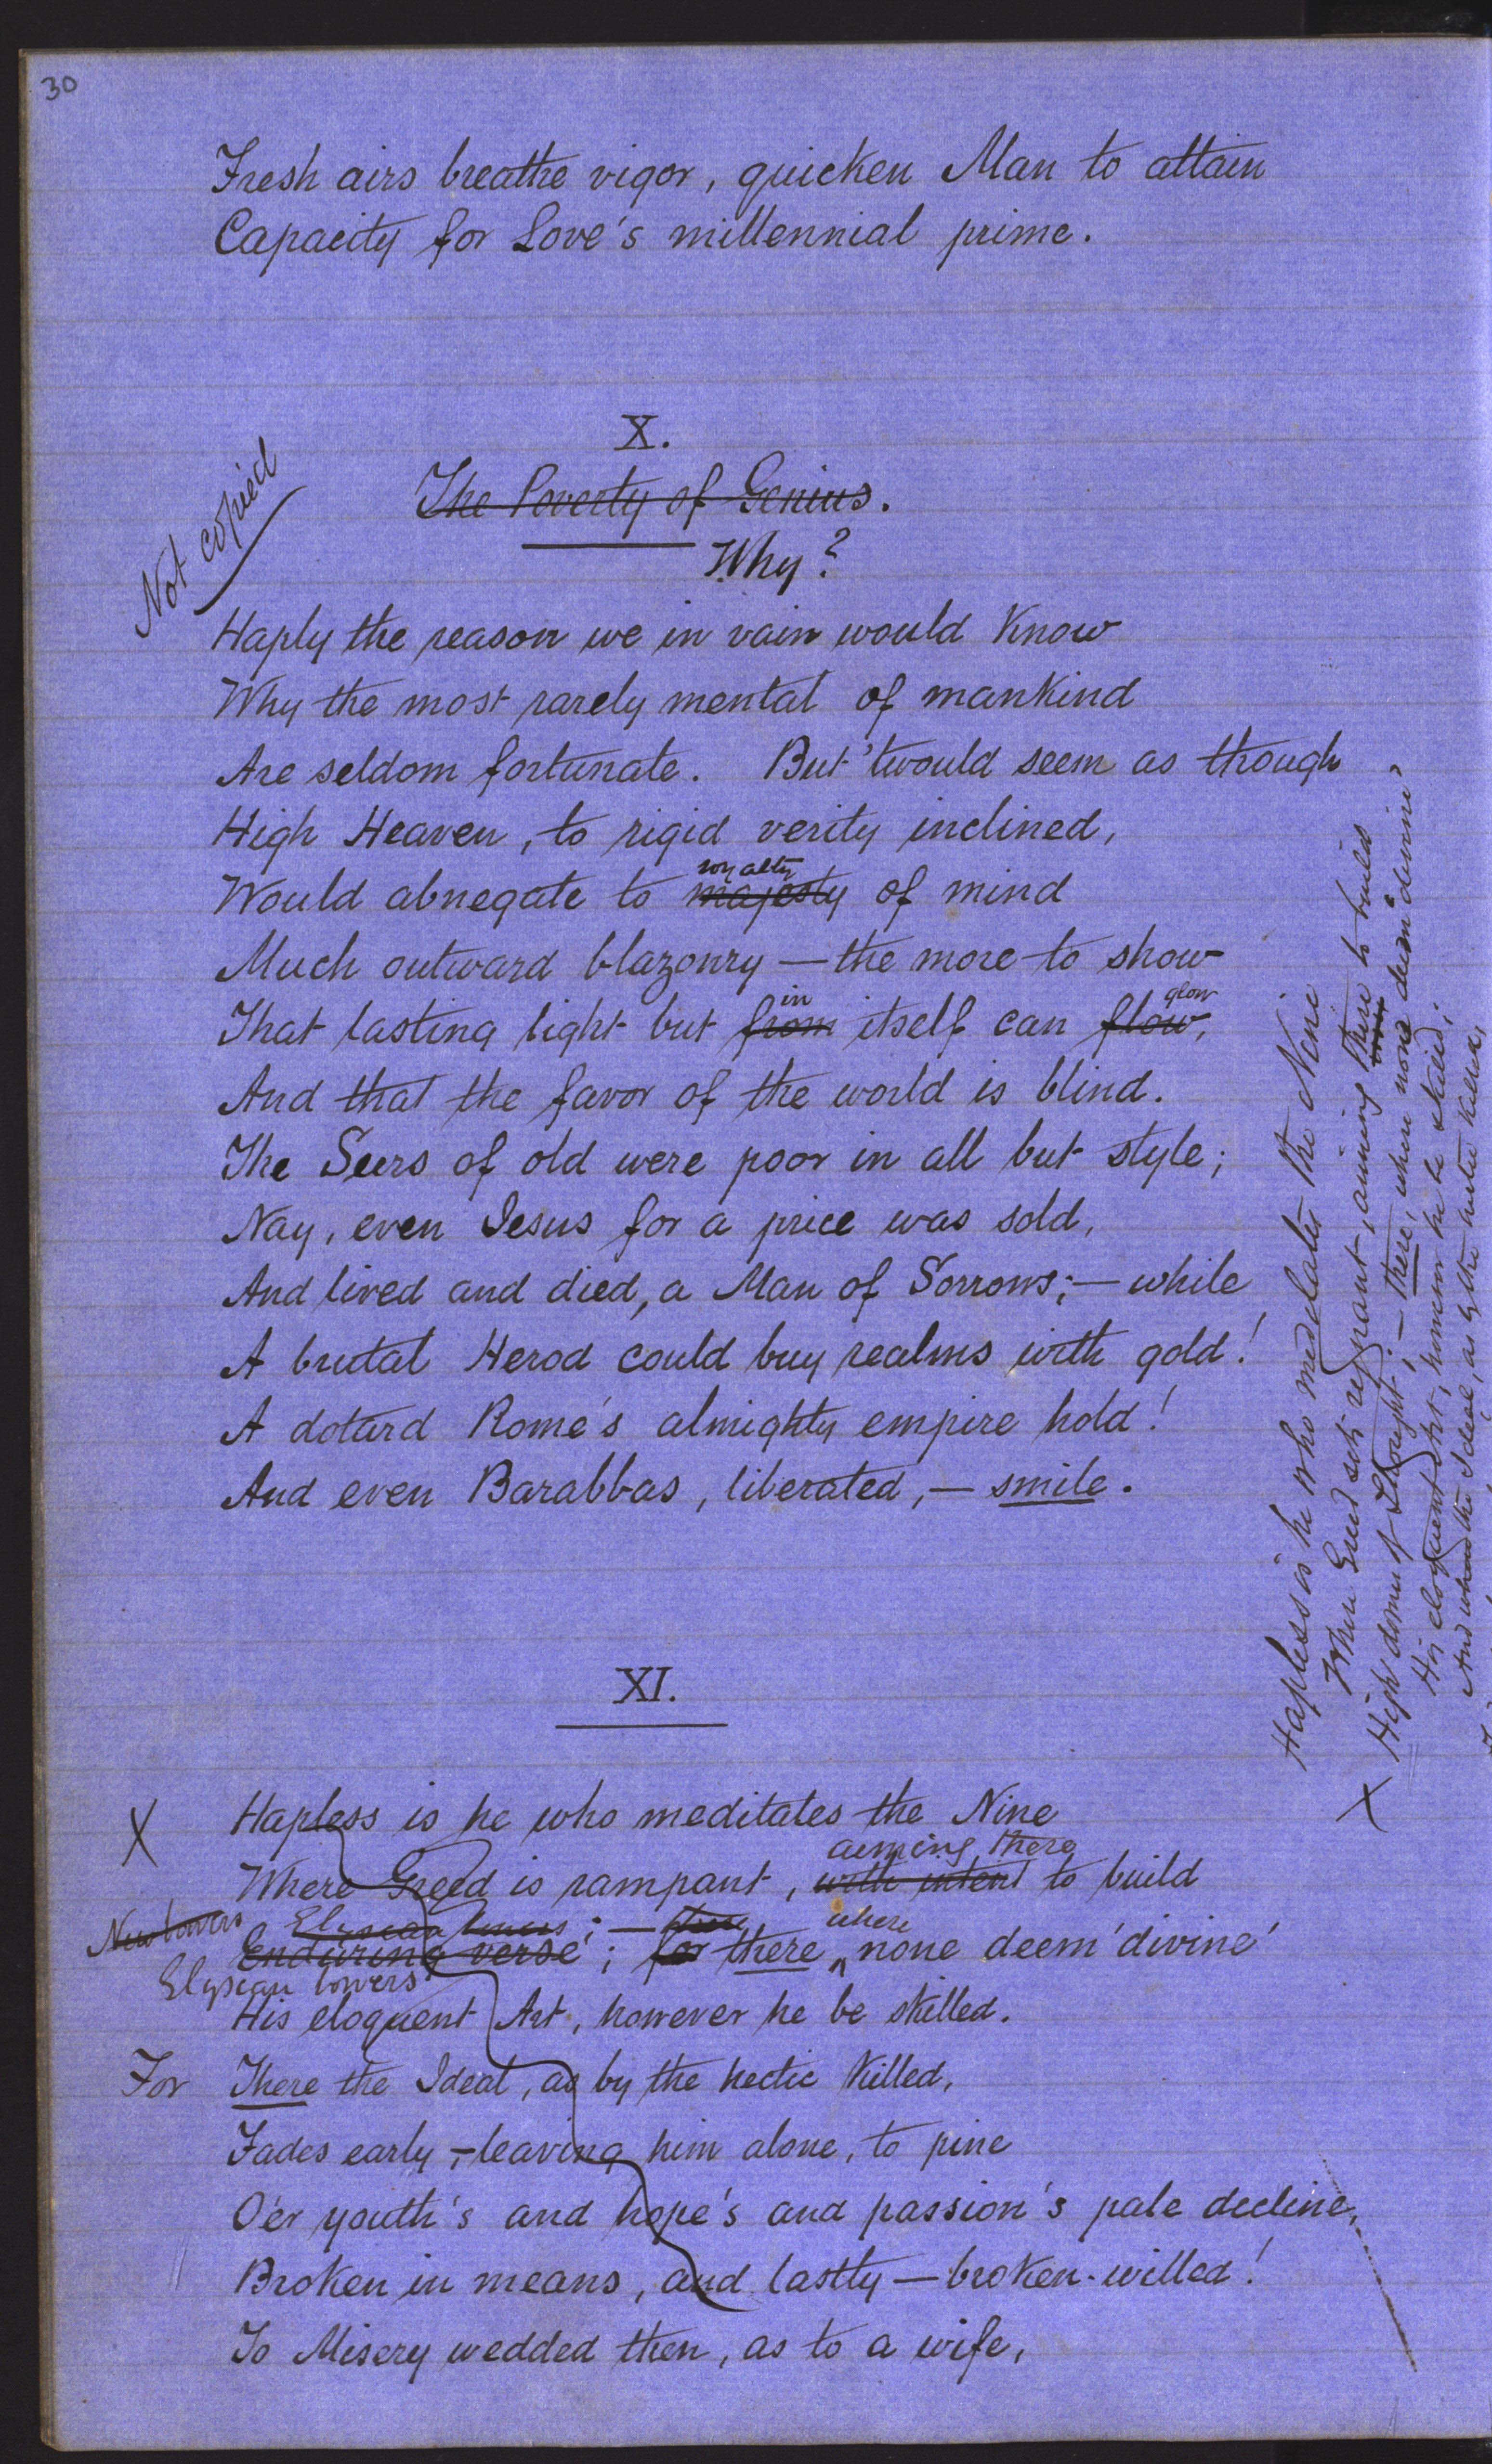 30
Fresh airs breathe vigor, quicken Man to attain
Capacity for Love's millennial prime.
X.
Not copied
The Poverty of Genius.
Why?
Haply the reason we in vain would Know
Why the most rarely mental of mankind
Are seldom fortunate. But 'twould seem as though
High Heaven, to rigid verity inclined,
royalty
Would abnegate to majesty of mind
Much outward blazonry — the more to show
in glow
That lasting light but from itself can flow,
And that the favor of the world is blind.
The Seers of old were poor in all but style;
Nay, even Jesus for a price was sold,
And lived and died, a Man of Sorrows; — while
A brutal Herod could buy realms with gold!
A dotard Rome's almighty empire hold!
And even Barabbas, liberated, — smile.
XI.
X Hapless is he who meditates the Nine
aiming there
Where Greed is rampant, with intent to build
New towers Elysian towers; — there, where
Enduring verse; for there none deem 'divine'
Elysian towers
His eloquent Art, however he be skilled.
For There the Ideal, as by the hectic Killed,
Fades early, — leaving him alone, to pine
O'er youth's and hope's and passion's pale decline,
Broken in means, and lastly — broken-willed!
To Misery wedded then, as to a wife,
Hapless is he who meditates the Nine
Where Greed sits regnant, aiming there to build
X High domes of Thought; — there, where none deem "divine"
His eloquent Art, however he be skilled;
And where the Ideal, as by the hectic killed,